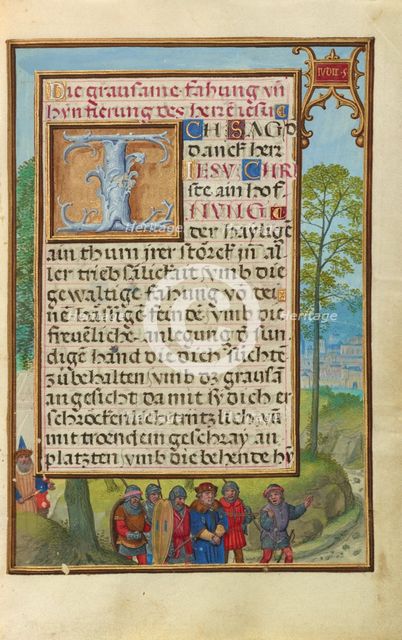 IVDIT·5
Die grausame fahung vn̄
hynfierung des herrē iesu
ICH SAG D
danck herr
IESV CHR
ste ain hof
NVNG
der haylige
ain thum irer störck jn̄ al
ler triebsälickait vmb die
gewaltige fahung vō dei
nē haylige feindē vmb die
freuenliche anlegung d̄ sun
digē hand die dich suchte
zu behalten vmb dz grausā
angesicht da mit sy dich er
schrockenlich entzlich vn̄
mit troend ein geschray an
platzten vmb die behente hy